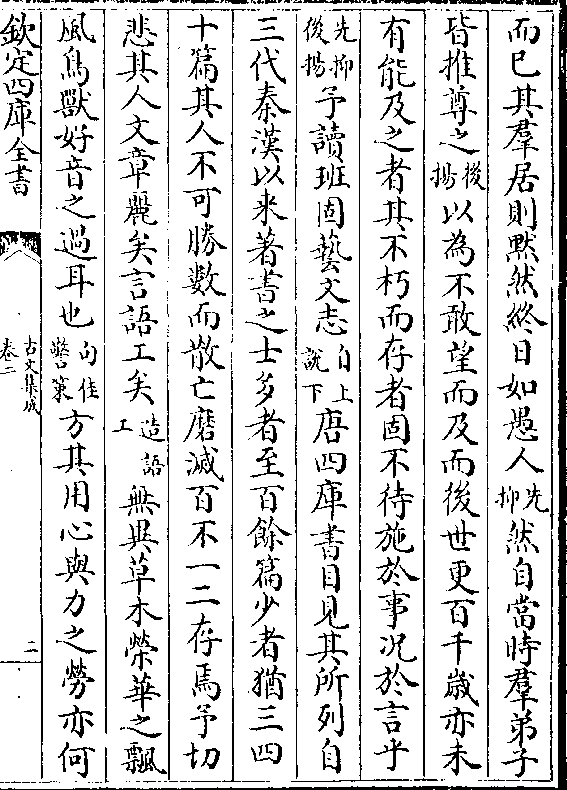 而已其羣居則黙然終日如愚人先抑然自當時羣弟子
皆推尊之後揚以為不敢望而及而後世更百千歲亦未
有能及之者其不朽而存者固不待施於事况於言乎
先抑後揚予讀班固藝文志自上說下唐四庫書目見其所列自
三代秦漢以来著書之士多者至百餘篇少者猶三四
十篇其人不可勝數而散亡磨滅百不一二存焉予切
悲其人文章麗矣言語工矣造語工無異草木榮華之飄
風鳥獸好音之過耳也句佳警策方其用心與力之勞亦何
欽定四庫全書
古文集成
卷二
二